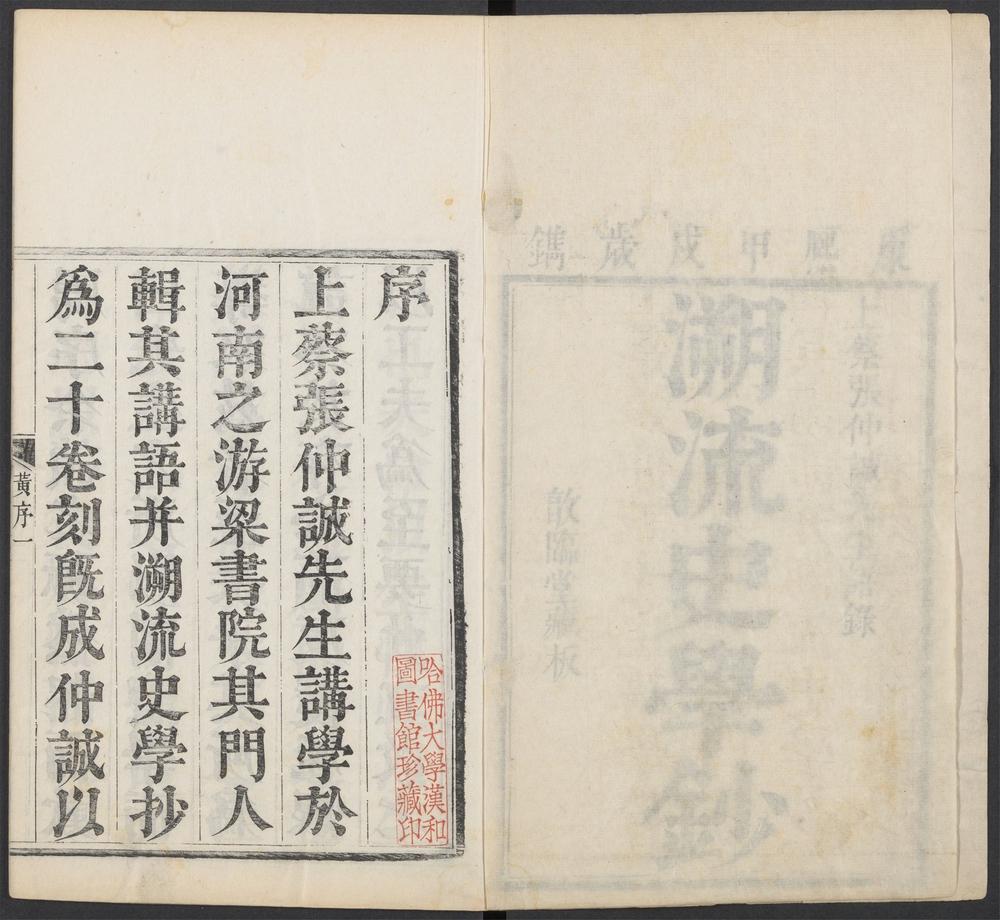 康熙甲戌歲鐫
上蔡張仲誠先生語錄
溯流史學鈔
敦臨堂藏板
序
上蔡張仲誠先生講學於
河南之游梁書院其門人
輯其講語并溯流史學抄
爲二十卷刻旣成仲誠以
黃序一
哈佛大學漢和
圖書館珍藏印